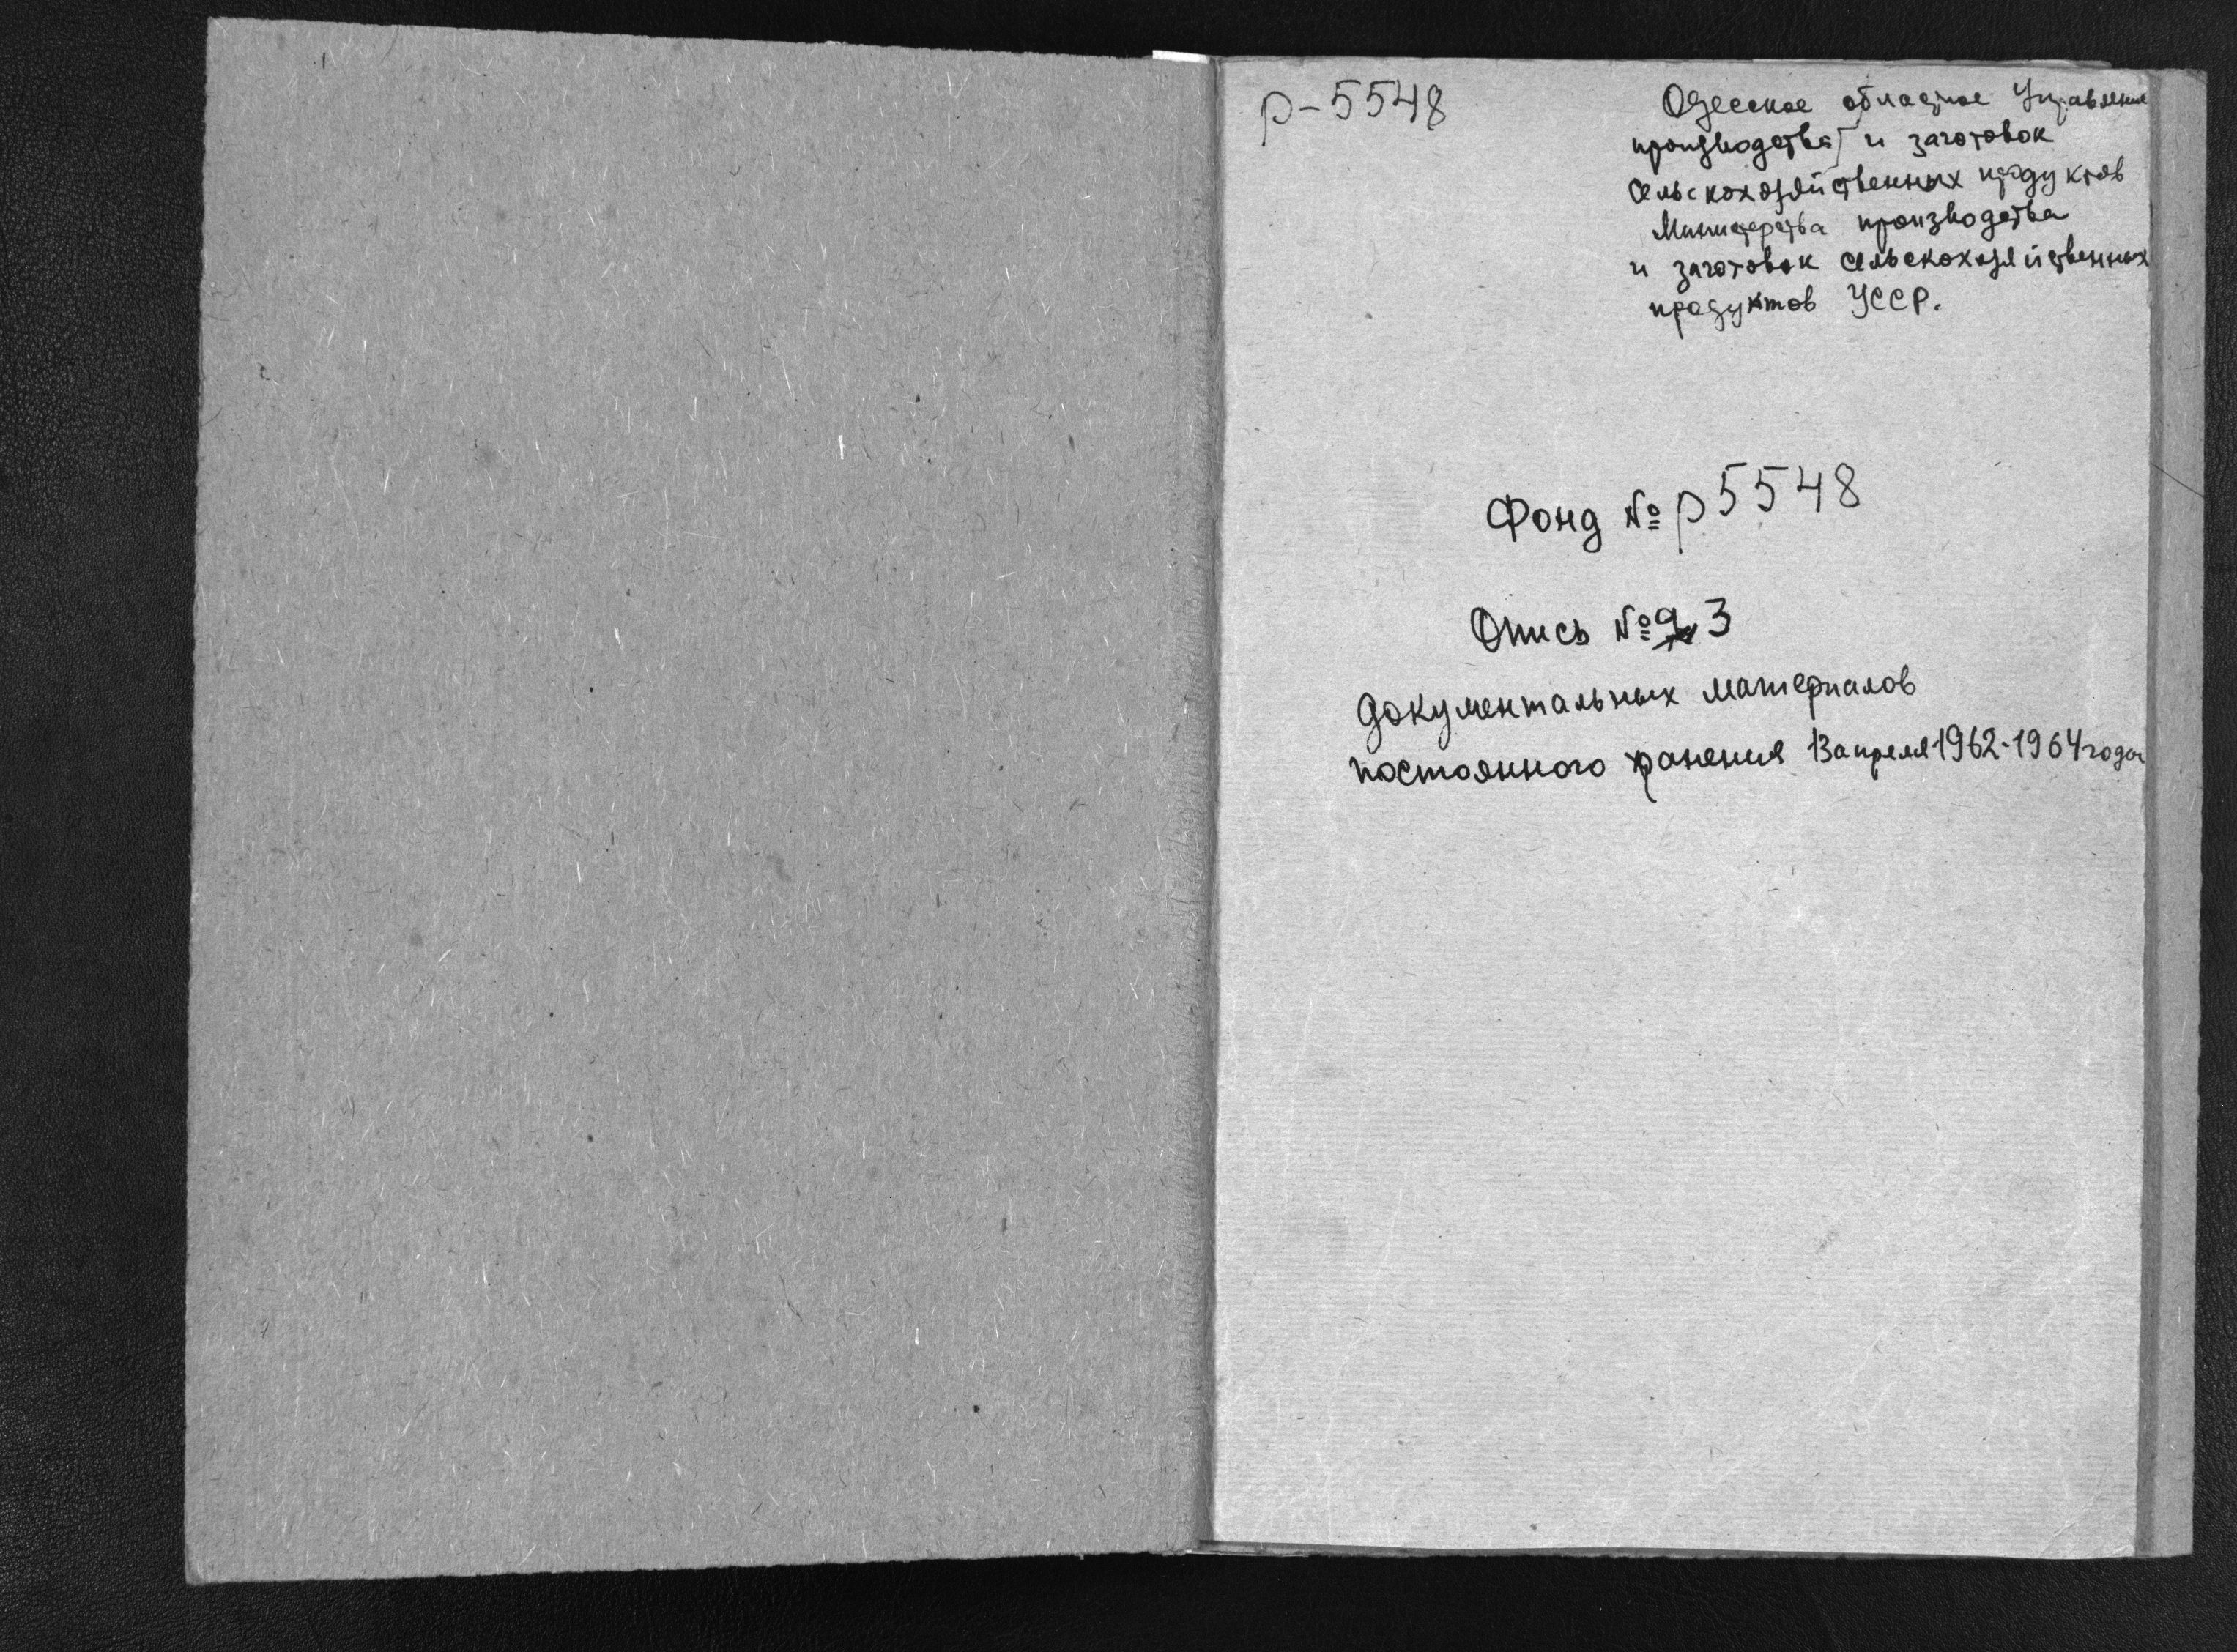 р-5548
Одесское областное Управление
производства и заготовок
сельскохозяйственных продуктов
Министерства производства
и заготовок сельскохозяйственных
продуктов УССР.
Фонд № р 5548
Опись № 3
документальных материалов
постоянного хранения 13 апреля 1962-1964 года